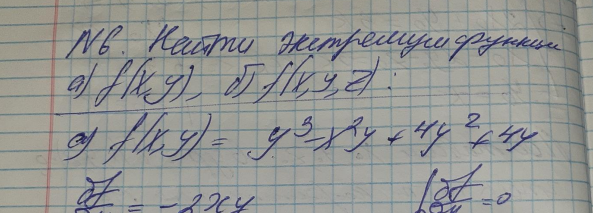 N6. Найти экстремум функции
а) f(x,y), б) f(x,y,z):
а) f(x,y) = y³-x²y+4y²+4y
∂f/∂x = -2xy { ∂f/∂x =0